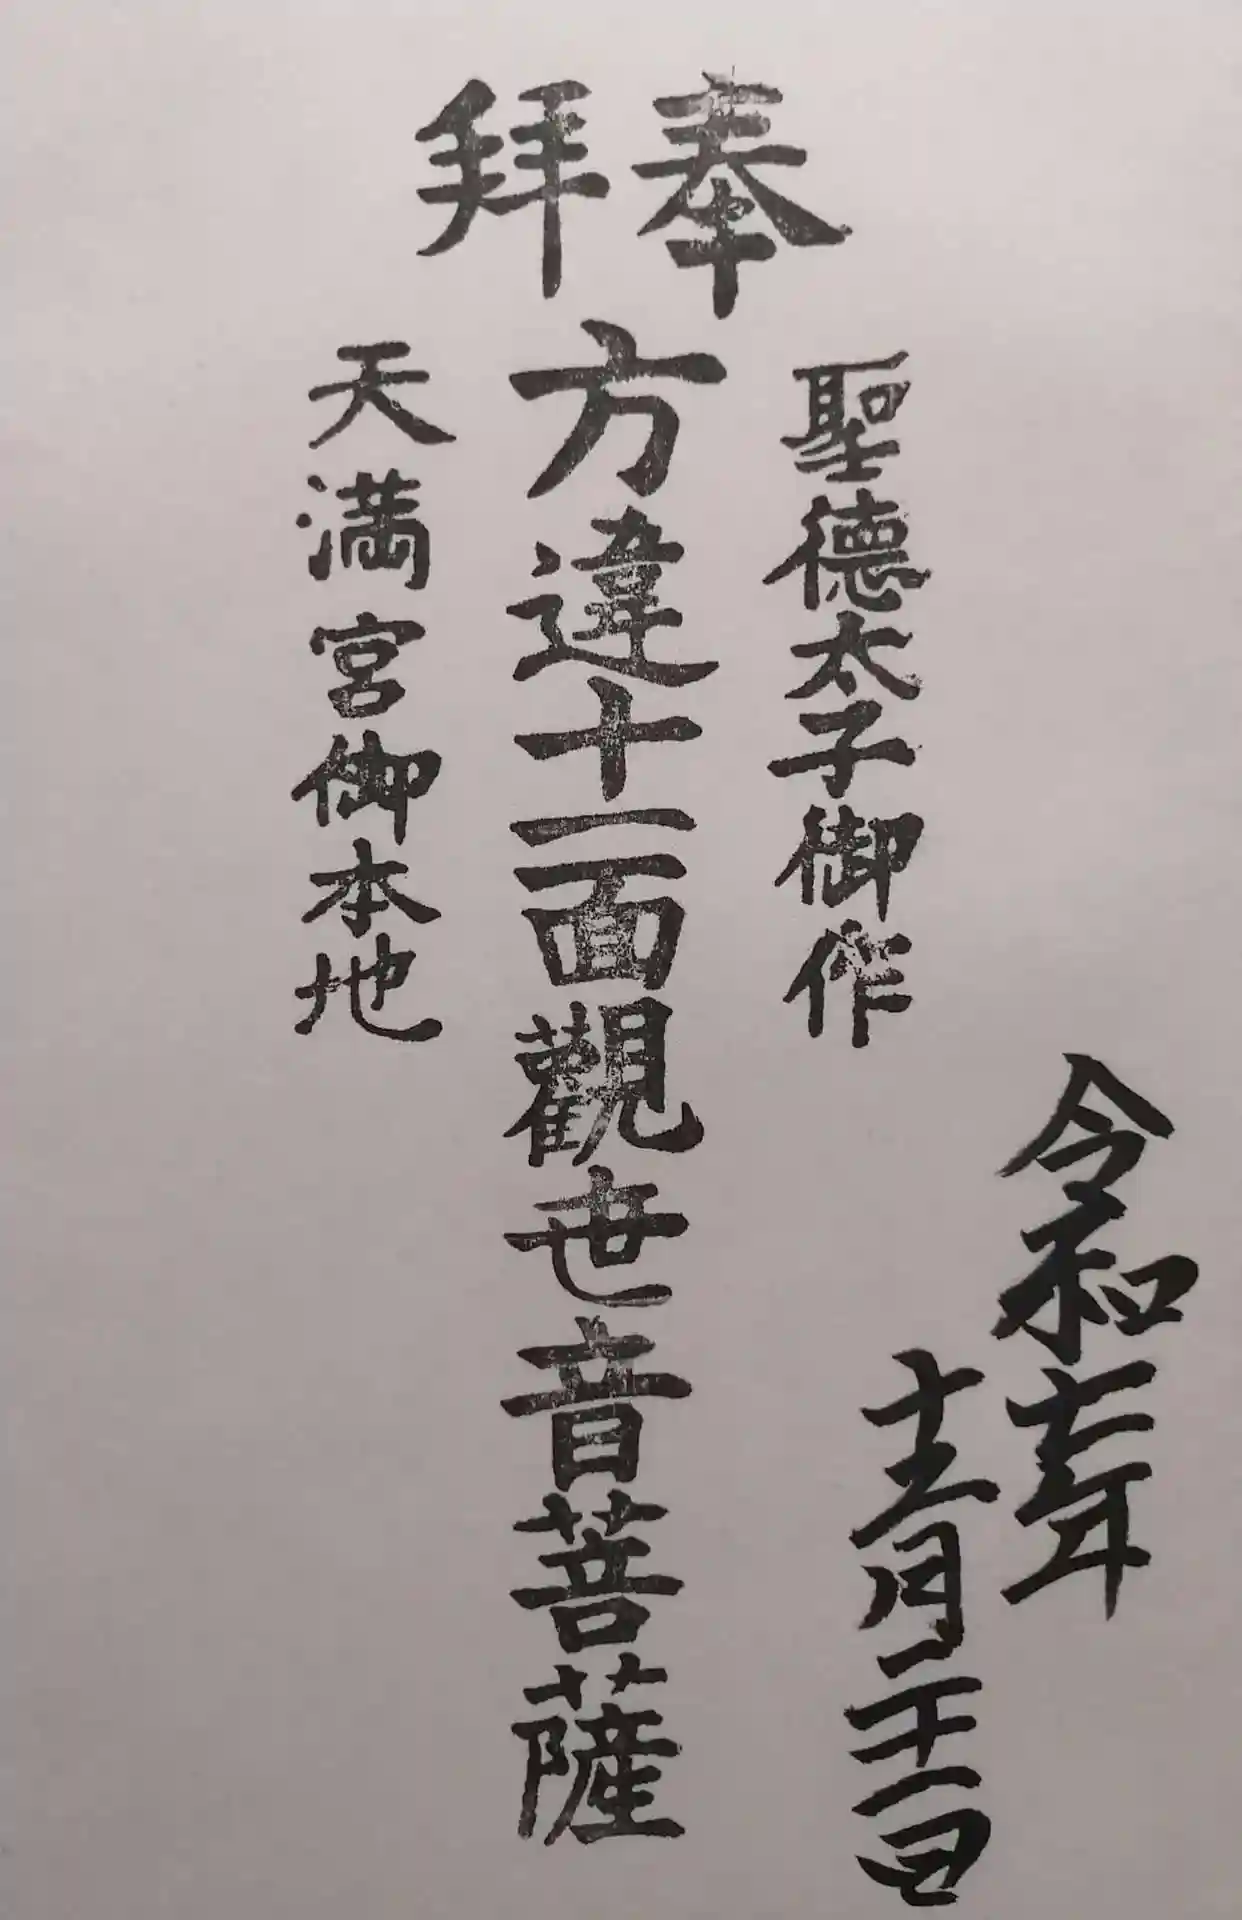 奉拜
聖德太子御作
方違十一面觀世音菩薩
天満宮御本地
令和七年
十二月二十一日